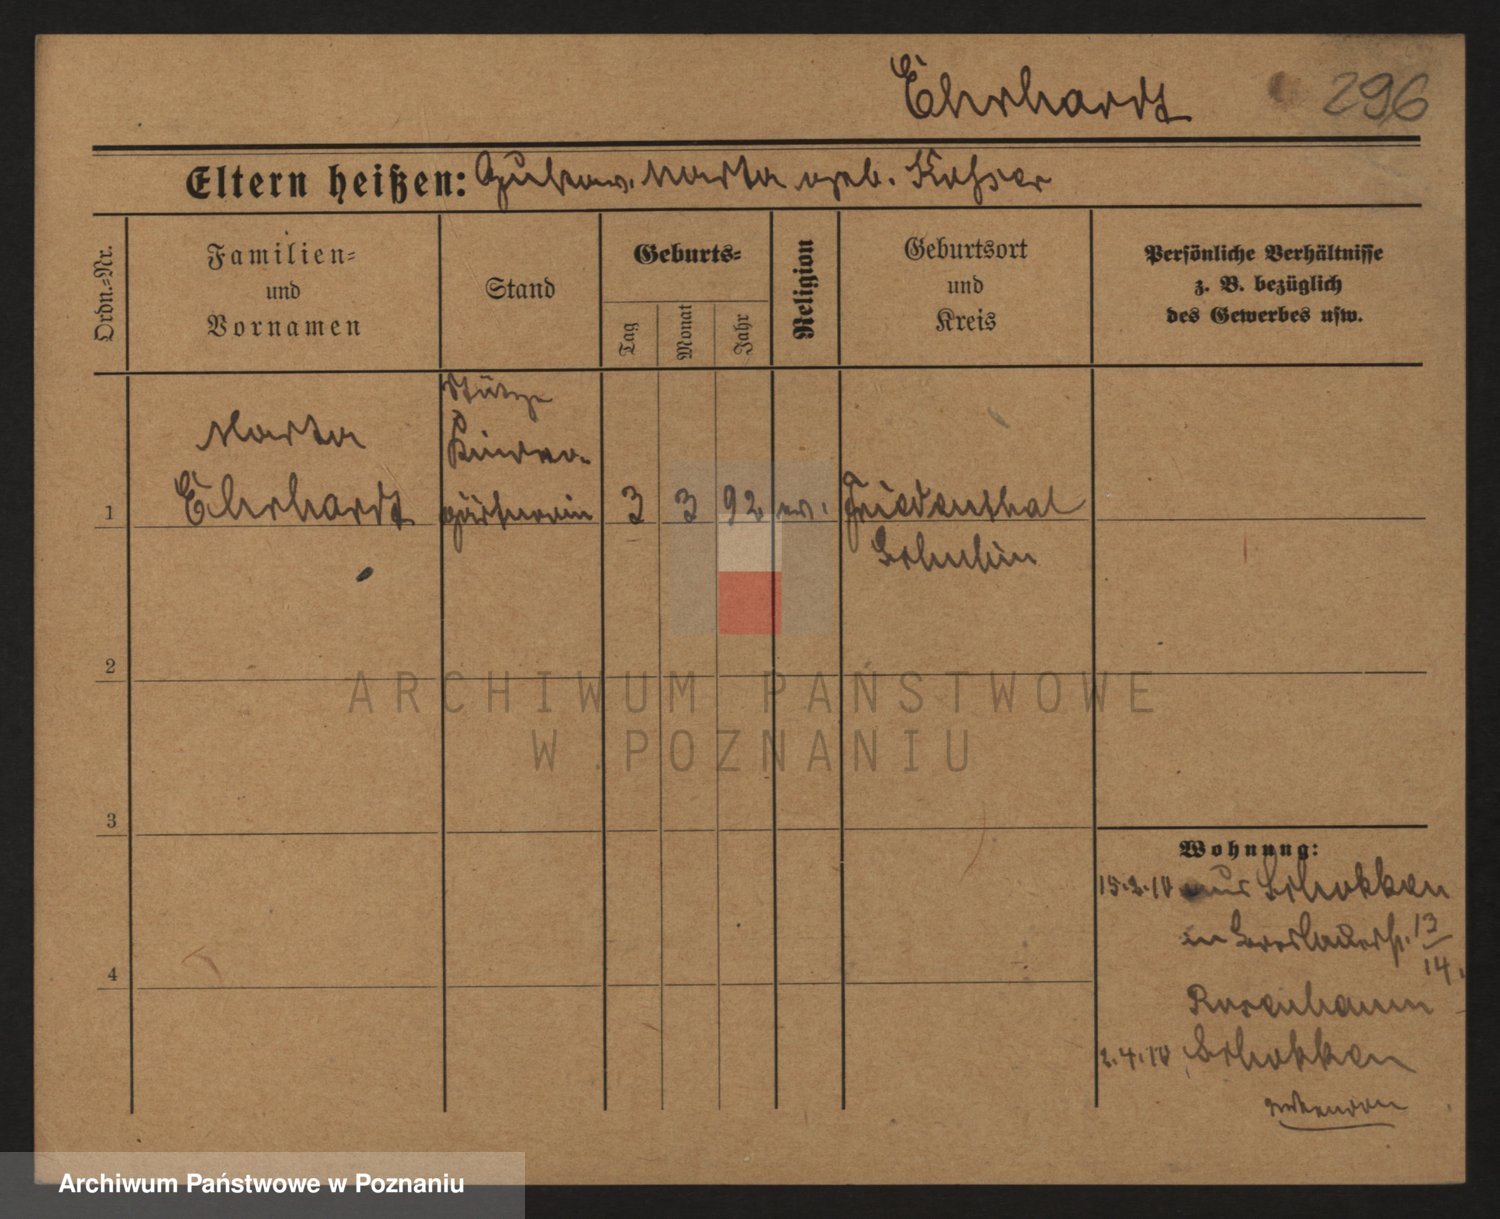 Ehrhardt 296
Eltern heißen: Gustav. Marta geb.
Ordn.=Nr.
Familien=
und
Vornamen
Stand
Geburts=
Tag
Monat
Jahr
Religion
Geburtsort
und
Kreis
Persönliche Verhältnisse
z. B. bezüglich
des Gewerbes usw.
Stütze
Marta Kinder-
1 Ehrhardt gärtnerin 3 3 92 ev. Friedenthal
Schubin
2
3
4
Wohnung:
15.2.10 aus Schokken
in Breslauerst. 13/14.
Rosenbaum
2.4.10 Schokken
ARCHIWUM PAŃSTWOWE
W POZNANIU
Archiwum Państwowe w Poznaniu